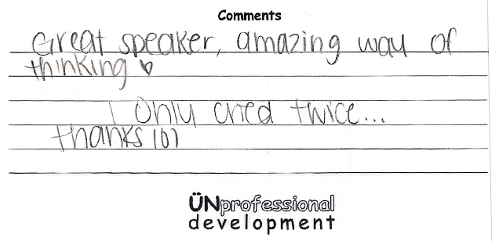 Comments
Great speaker, amazing way of
thinking ♥
I Only cried twice...
thanks lol
ÜNprofessional
development